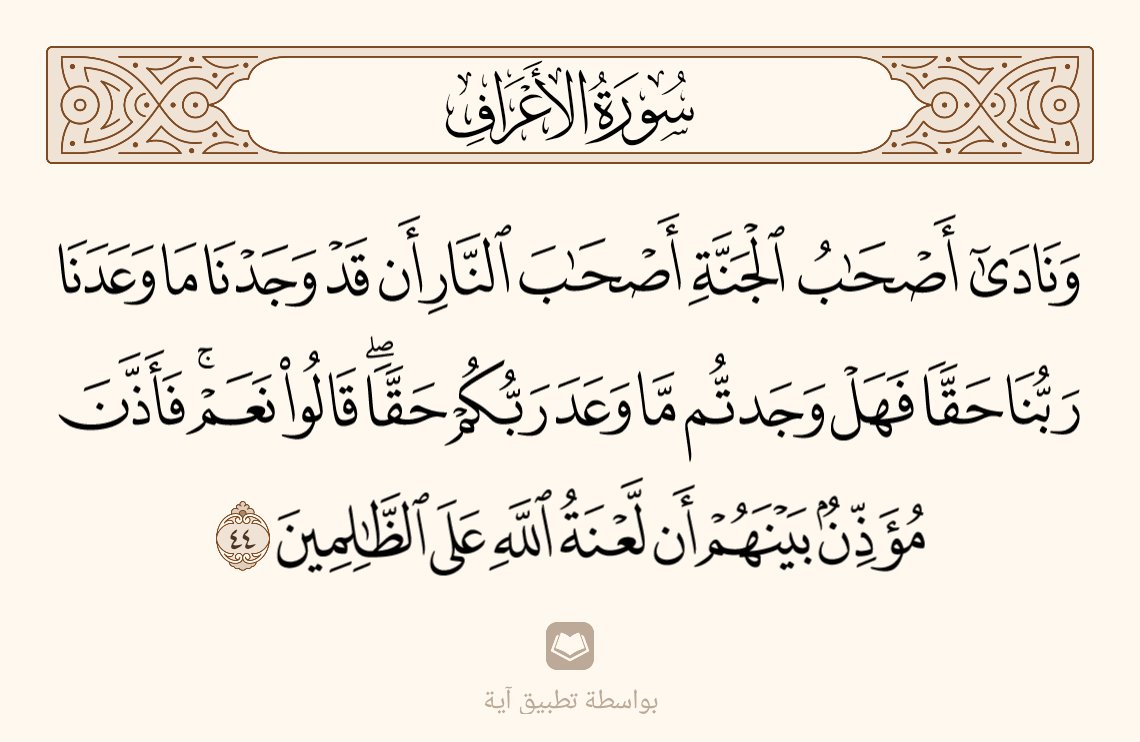 سُورَةُ الأَعْرَافِ
وَنَادَىٰٓ أَصْحَـٰبُ ٱلْجَنَّةِ أَصْحَـٰبَ ٱلنَّارِ أَن قَدْ وَجَدْنَا مَا وَعَدَنَا
رَبُّنَا حَقًّا فَهَلْ وَجَدتُّم مَّا وَعَدَ رَبُّكُمْ حَقًّاۖ قَالُوا۟ نَعَمْۚ فَأَذَّنَ
مُؤَذِّنٌۢ بَيْنَهُمْ أَن لَّعْنَةُ ٱللَّهِ عَلَى ٱلظَّـٰلِمِينَ ٤٤
بواسطة تطبيق آية